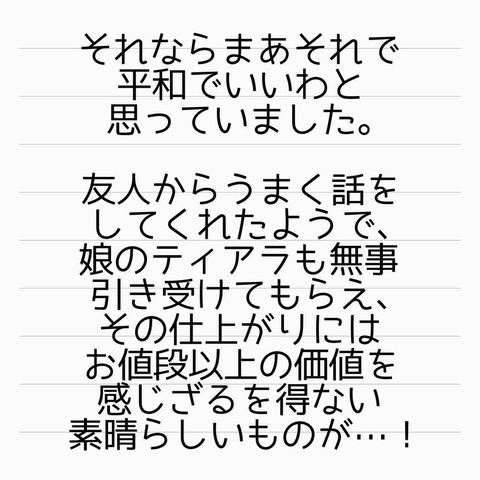 それならまあそれで
平和でいいわと
思っていました。
友人からうまく話を
してくれたようで、
娘のティアラも無事
引き受けてもらえ、
その仕上がりには
お値段以上の価値を
感じざるを得ない
素晴らしいものが…！